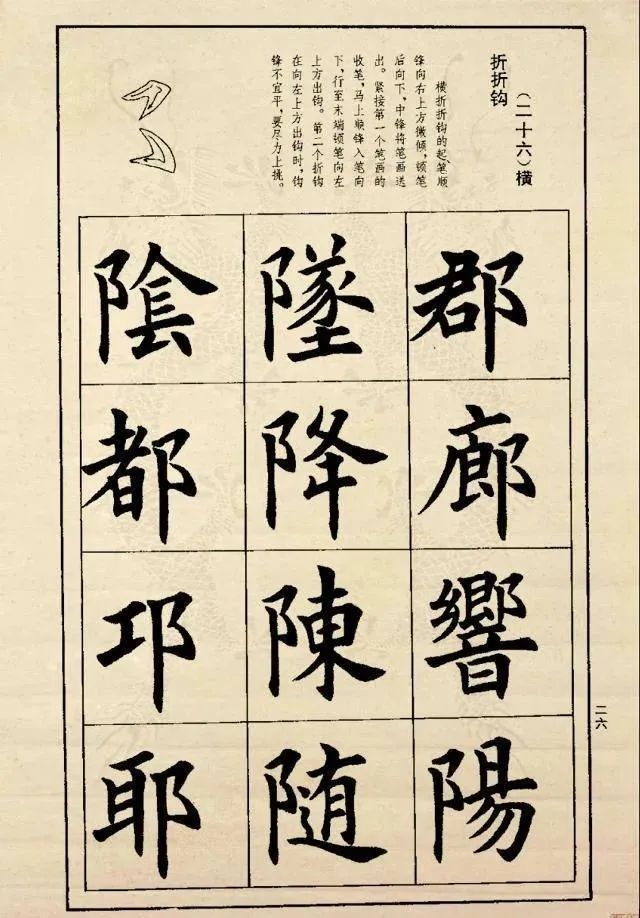 （二十六）横
折折钩
横折折钩的起笔顺
锋向右上方微倾，顿笔
后向下，中锋将笔画送
出。紧接第一个笔画的
收笔，马上顺锋入笔向
下，行至末端顿笔向左
上方出钩。第二个折钩
在向左上方出钩时，钩
锋不宜平，要尽力上挑。
郡
廊
響
陽
墜
降
陳
随
陰
都
邛
耶
二六